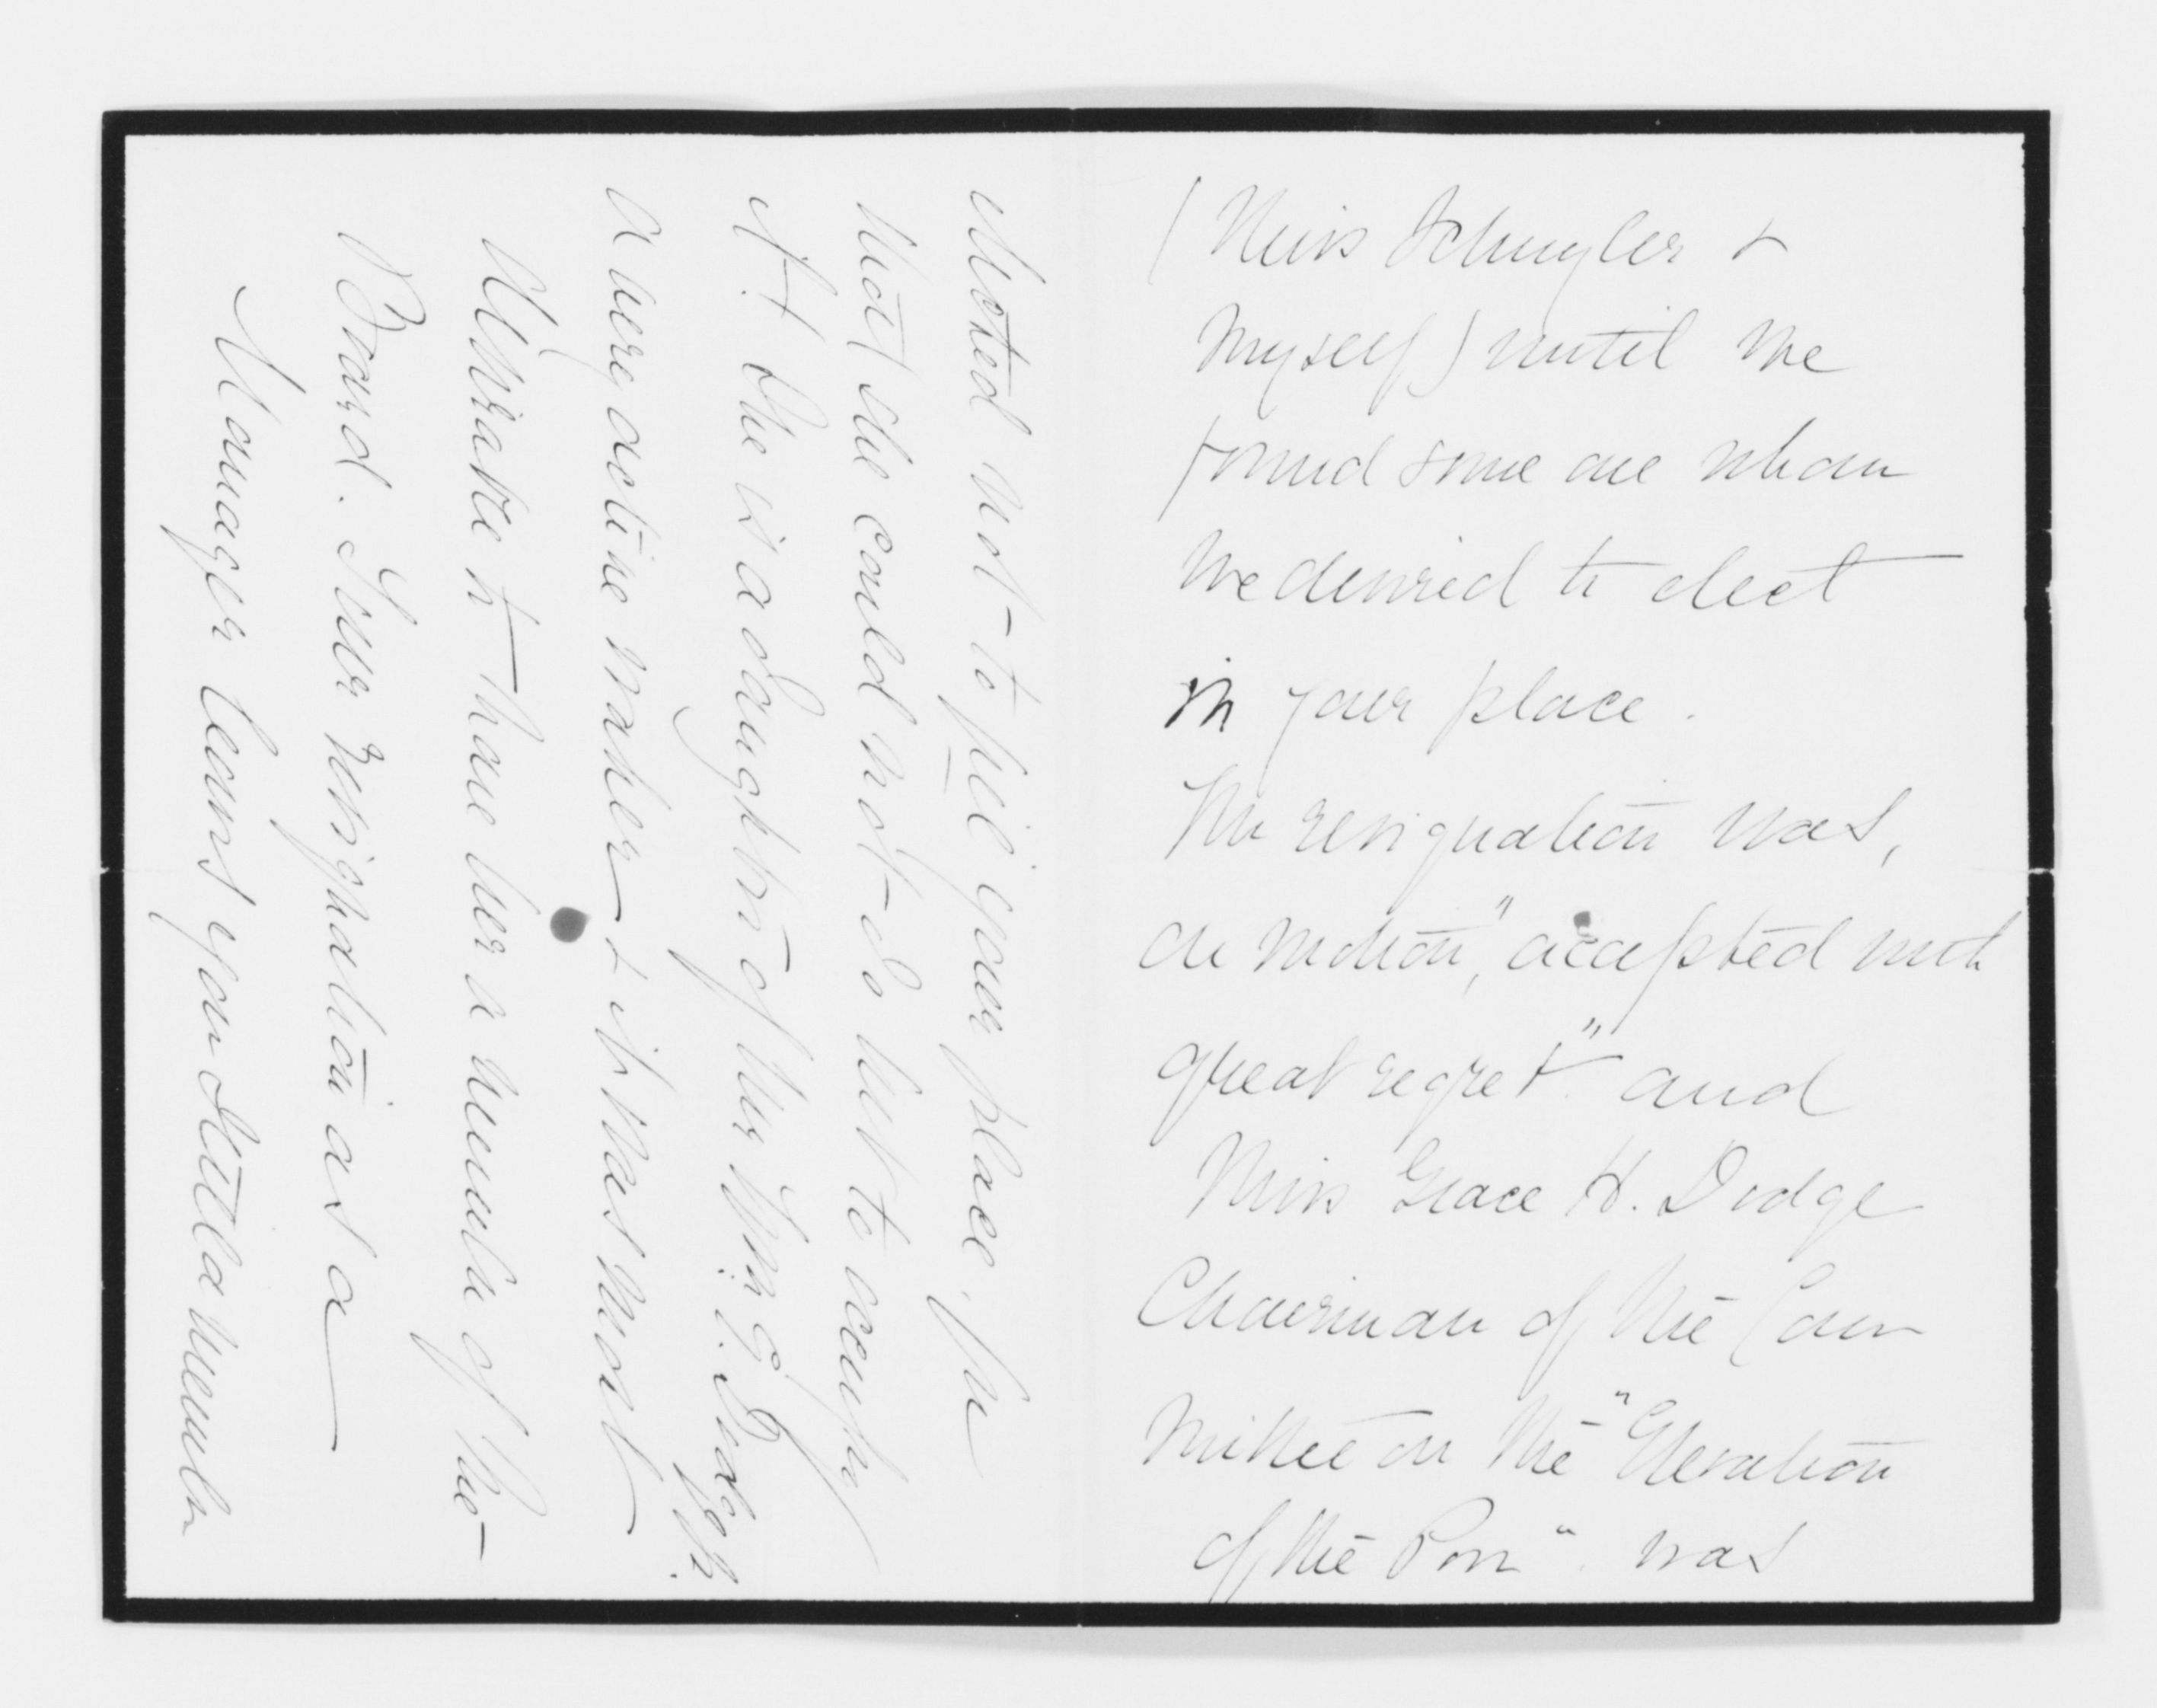 (Miss Schuyler +
myself) until we
found some one whom
we desired to elect
in your place.
The resignation was,
on motion, "accepted with
great regret" and
Miss Grace H. Dodge
Chairman of the Com
mittee on the "Elevation
of the Poor" was
elected not to fill your place, for
that she could not do but to occupy
it. She is a daughter of Mr Wm E. Dodge Jr.
a very active worker + it was most
desirable to have her a member of the
Board. Your resignation as a
Manager leaves you still a member